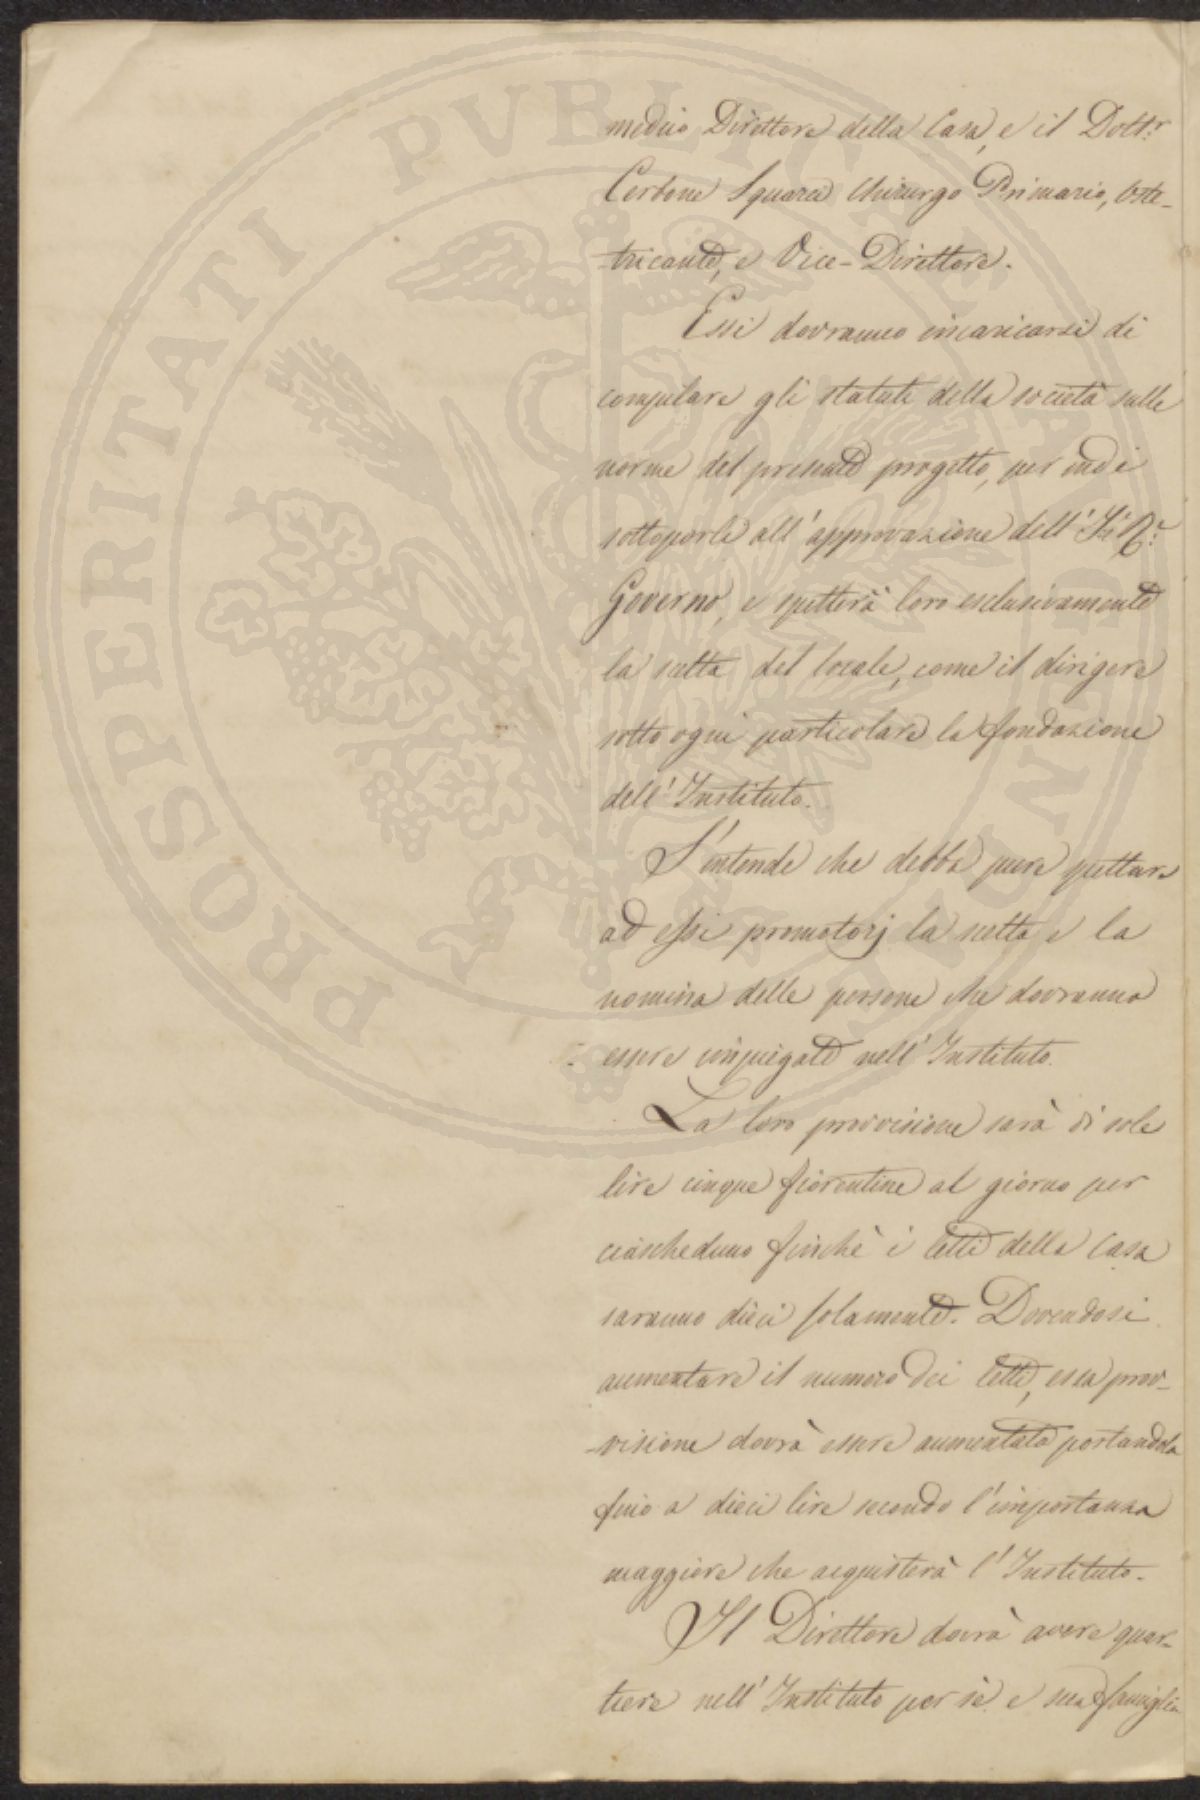 PROSPERITATI PVBLICAE AVGENDAE
medico Direttore della Casa, e il Dott.r
Cerbone Squarci Chirurgo Primario, Oste-
tricante, e Vice-Direttore.
Essi dovranno incaricarsi di
compilare gli statuti della società sulle
norme del presente progetto, per indi
sottoporli all'approvazione dell'I. R.
Governo, e spetterà loro esclusivamente
la scelta del locale, come il dirigere
sotto ogni particolare la fondazione
dell'Instituto.
S'intende che debba pure spettare
ad essi promotorj la scelta e la
nomina delle persone che dovranno
essere impiegate nell'Instituto.
La loro provvisione sarà di sole
lire cinque fiorentine al giorno per
ciascheduno finchè i letti della Casa
saranno dieci solamente. Dovendosi
aumentare il numero dei letti, essa prov-
-visione dovrà essere aumentata portandola
fino a dieci lire secondo l'importanza
maggiore che acquisterà l'Instituto.
Il Direttore dovrà avere quar-
tiere nell'Instituto per sè e sua famiglia